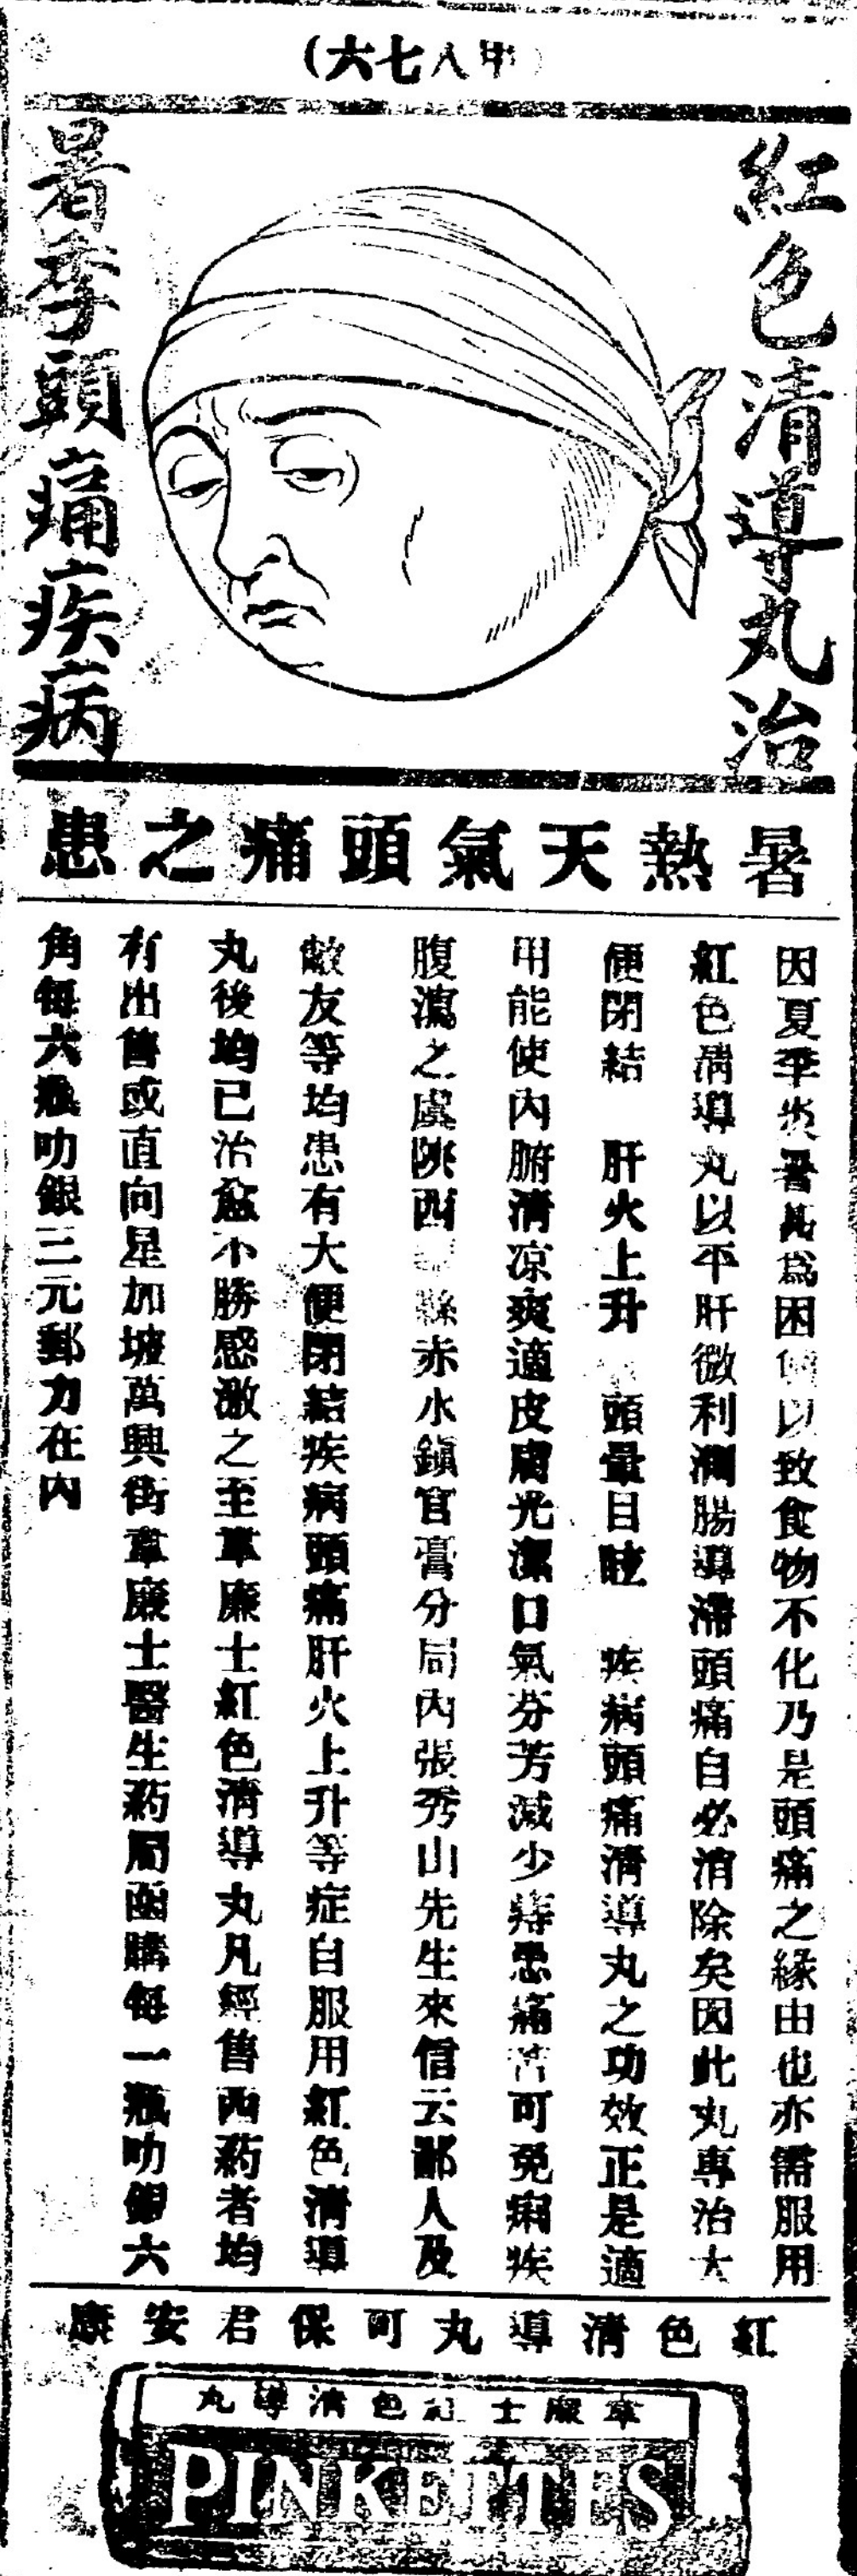 (甲八七六)
紅色清導丸治
暑季頭痛疾病
暑熱天氣頭痛之患
因夏季炎暑甚為困 以致食物不化乃是頭痛之緣由也亦需服用
紅色清導丸以平肝微利潤腸導滯頭痛自必消除矣因此丸專治大
便閉結 肝火上升 頭暈目眩 疾病頭痛清導丸之功效正是適
用能使內腑清凉爽適皮膚光潔口氣芬芳減少痔患痛苦可免痢疾
腹瀉之虞陝西 縣赤水鎮官膏分局內張秀山先生來信云鄙人及
敝友等均患有大便閉結疾病頭痛肝火上升等症自服用紅色清導
丸後均已治愈不勝感激之至韋廉士紅色清導丸凡經售西葯者均
有出售或直向星加坡萬興街韋廉士醫生葯局函購每一瓶叻銀六
角每六瓶叻銀三元郵力在內
紅色清導丸可保君安康
韋廉士紅色清導丸
PINKETTES